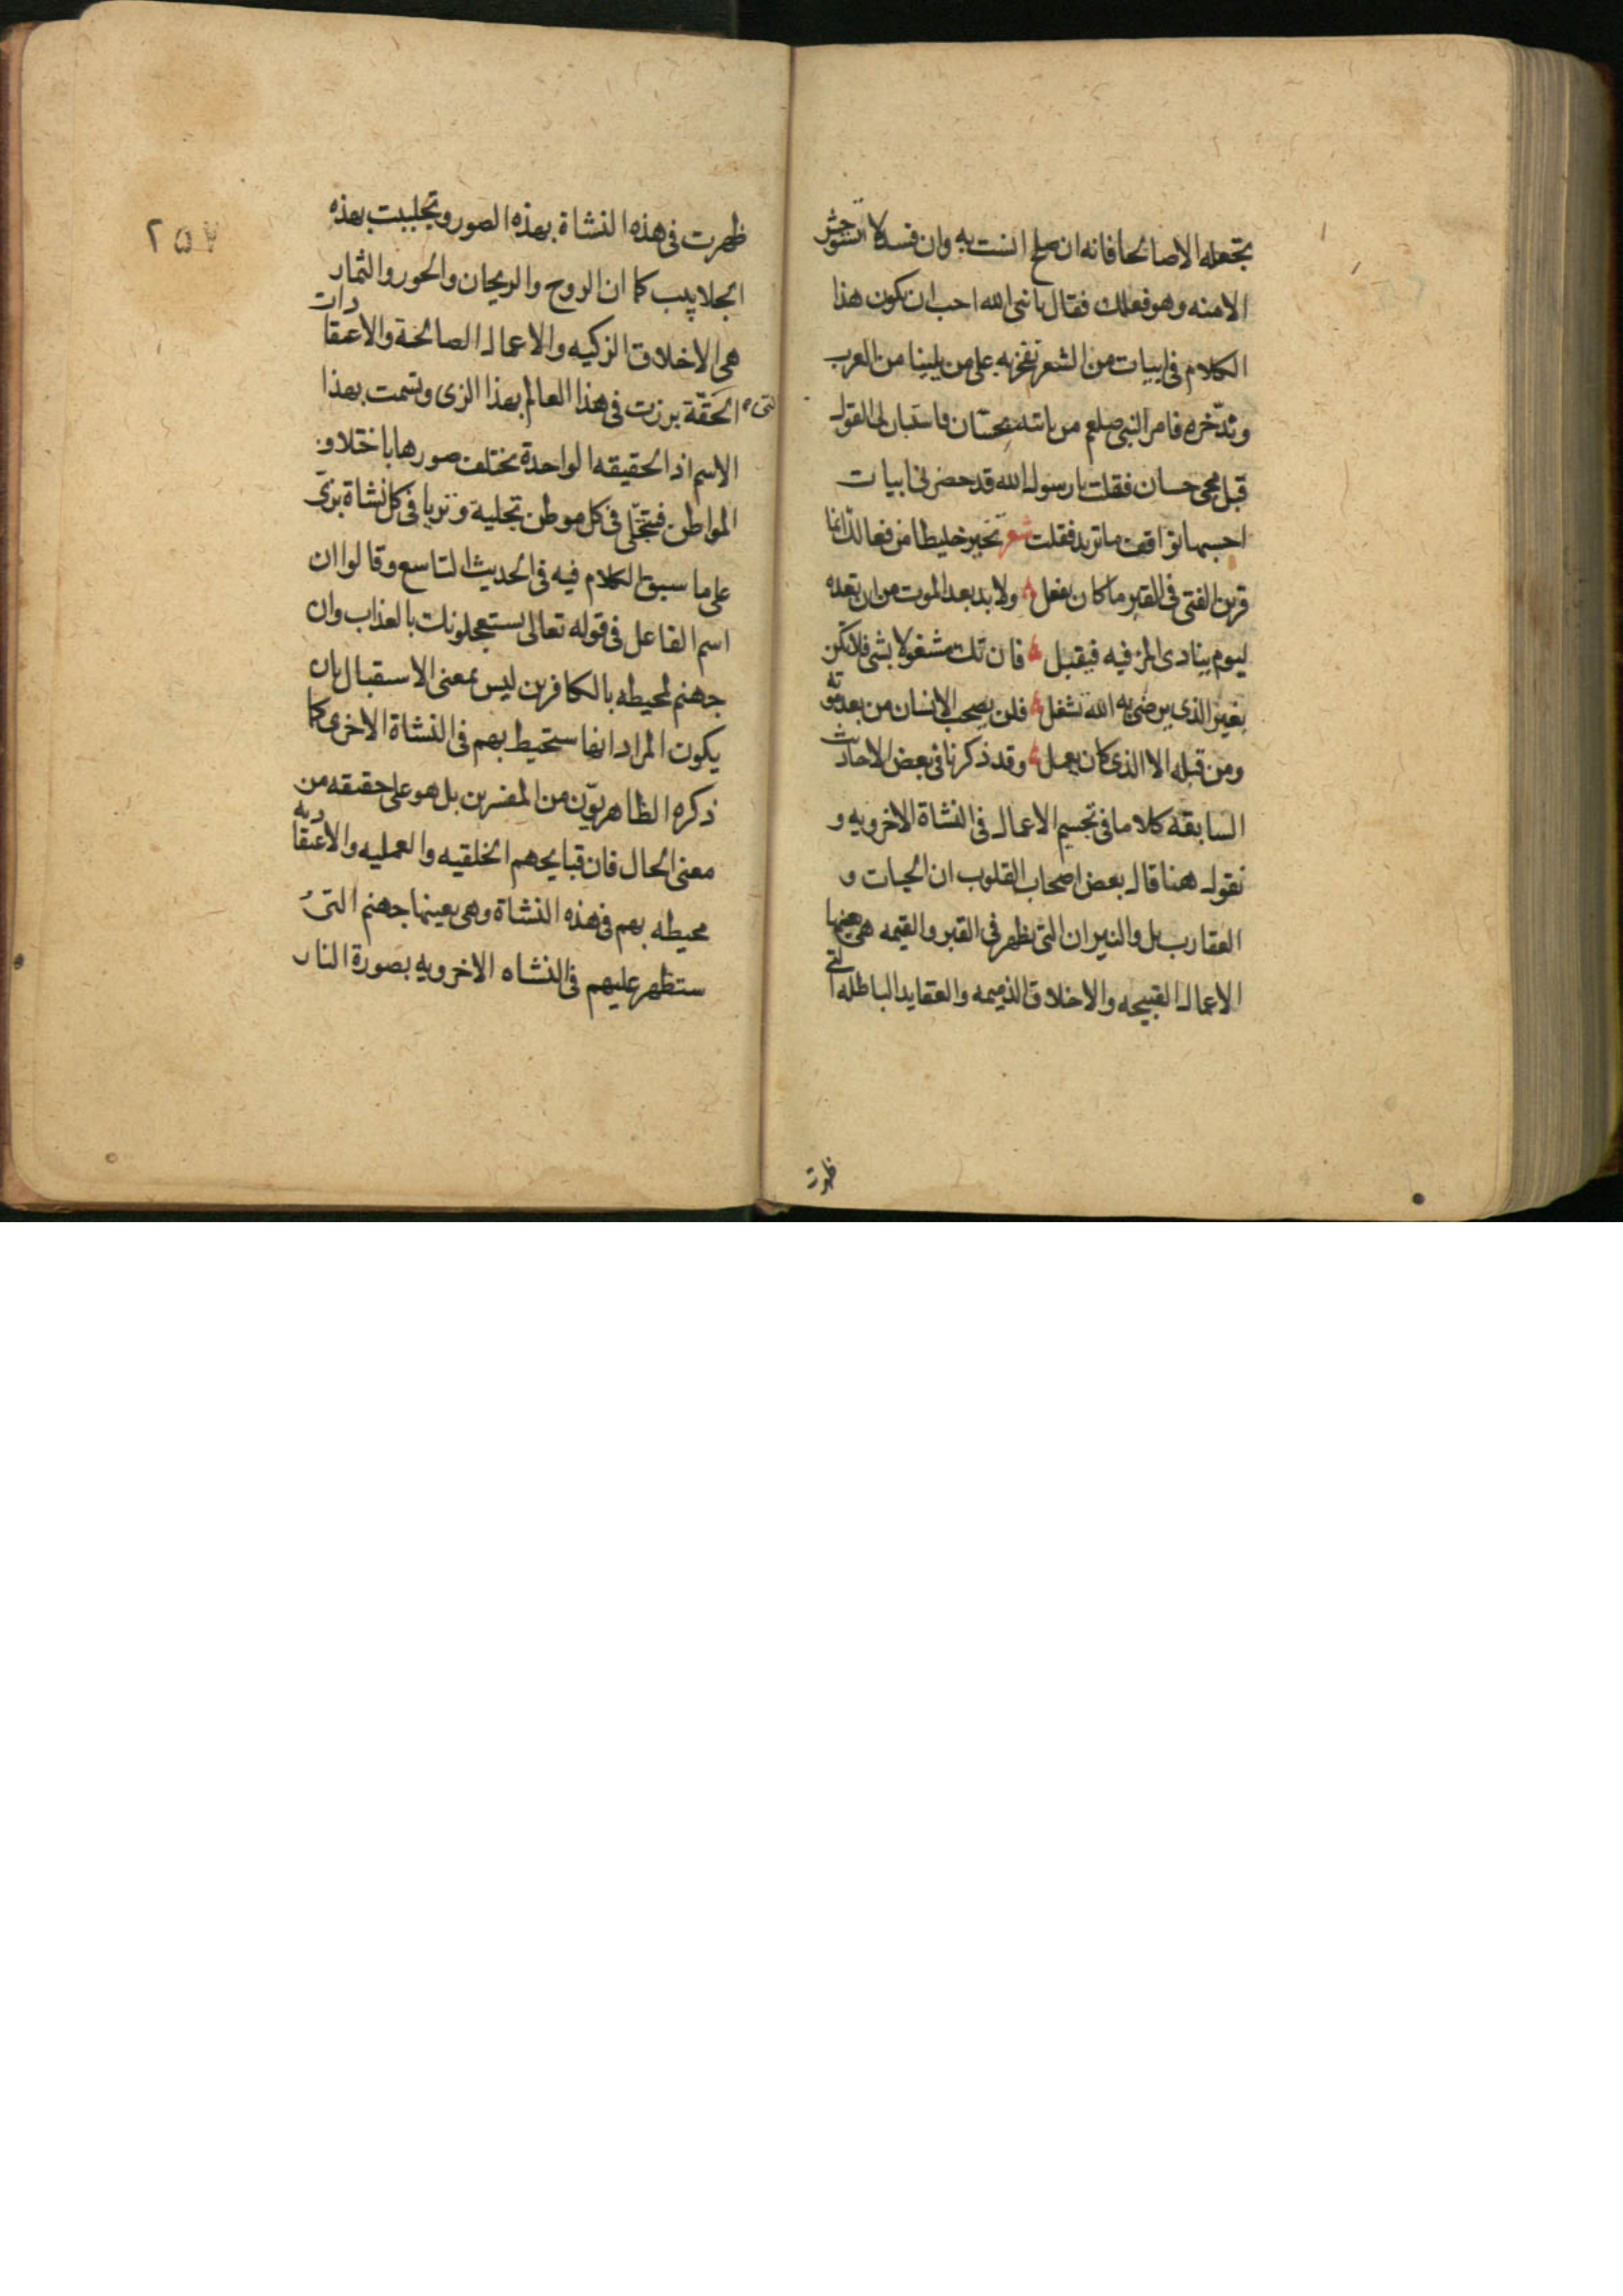 تجعله الا صالحا فانه ان صلح انست به وان فسد لا تستوحش
الا منه وهو فعلك فقال يا نبى الله احب ان يكون هذا
الكلام فى ابيات من الشعر نفخر به على من يلينا من العرب
وندّخره فامر النبى صلعم من ياتيه بحسّان فاستبان لى القول
قبل مجى حسان فقلت يا رسول الله قد حضرنى ابيات
احسبها توافق ما تريد فقلت شعر تخير خليطا من فعالك انما
قرين الفتى فى القبر ما كان يفعل ولا بد بعد الموت من ان تعده
ليوم ينادى المرء فيه فيقبل فان تك مشغولا بشى فلا تكن
بغير الذى يرضى به الله تشغل فلن يصحب الانسان من بعد موته
ومن قبله الا الذى كان يعمل وقد ذكرنا فى بعض الاحاديث
السابقة كلاما فى تجسيم الاعمال فى النشاة الاخرويه و
نقول ههنا قال بعض اصحاب القلوب ان الحيات و
العقارب بل والنيران التى تظهر فى القبر والقيمه هى بعينها
الاعمال القبيحه والاخلاق الذميمه والعقايد الباطله التى
ظهرت
٢٥٧
ظهرت فى هذه النشاة بهذه الصور وتجلببت بهذه
الجلابيب كما ان الروح والريحان والحور والثمار
هى الاخلاق الزكيه والاعمال الصالحة والاعتقادات
الحقّة التى برزت فى هذا العالم بهذا الزى وتسمت بهذا
الاسم اذ الحقيقه الواحدة تختلف صورها باختلاف
المواطن فتتحلّى فى كل موطن بحلية وتزيا فى كل نشاة بزىّ
على ما سبق الكلام فيه فى الحديث التاسع وقالوا ان
اسم الفاعل فى قوله تعالى يستعجلونك بالعذاب وان
جهنم لمحيطه بالكافرين ليس بمعنى الاستقبال بان
يكون المراد انها ستحيط بهم فى النشاة الاخرى كما
ذكره الظاهريّون من المفسرين بل هو على حقيقه من
معنى الحال فان قبايحهم الخلقيه والعمليه والاعتقاديه
محيطه بهم فى هذه النشاة وهى بعينها جهنم التى
ستظهر عليهم فى النشاه الاخرويه بصورة النار